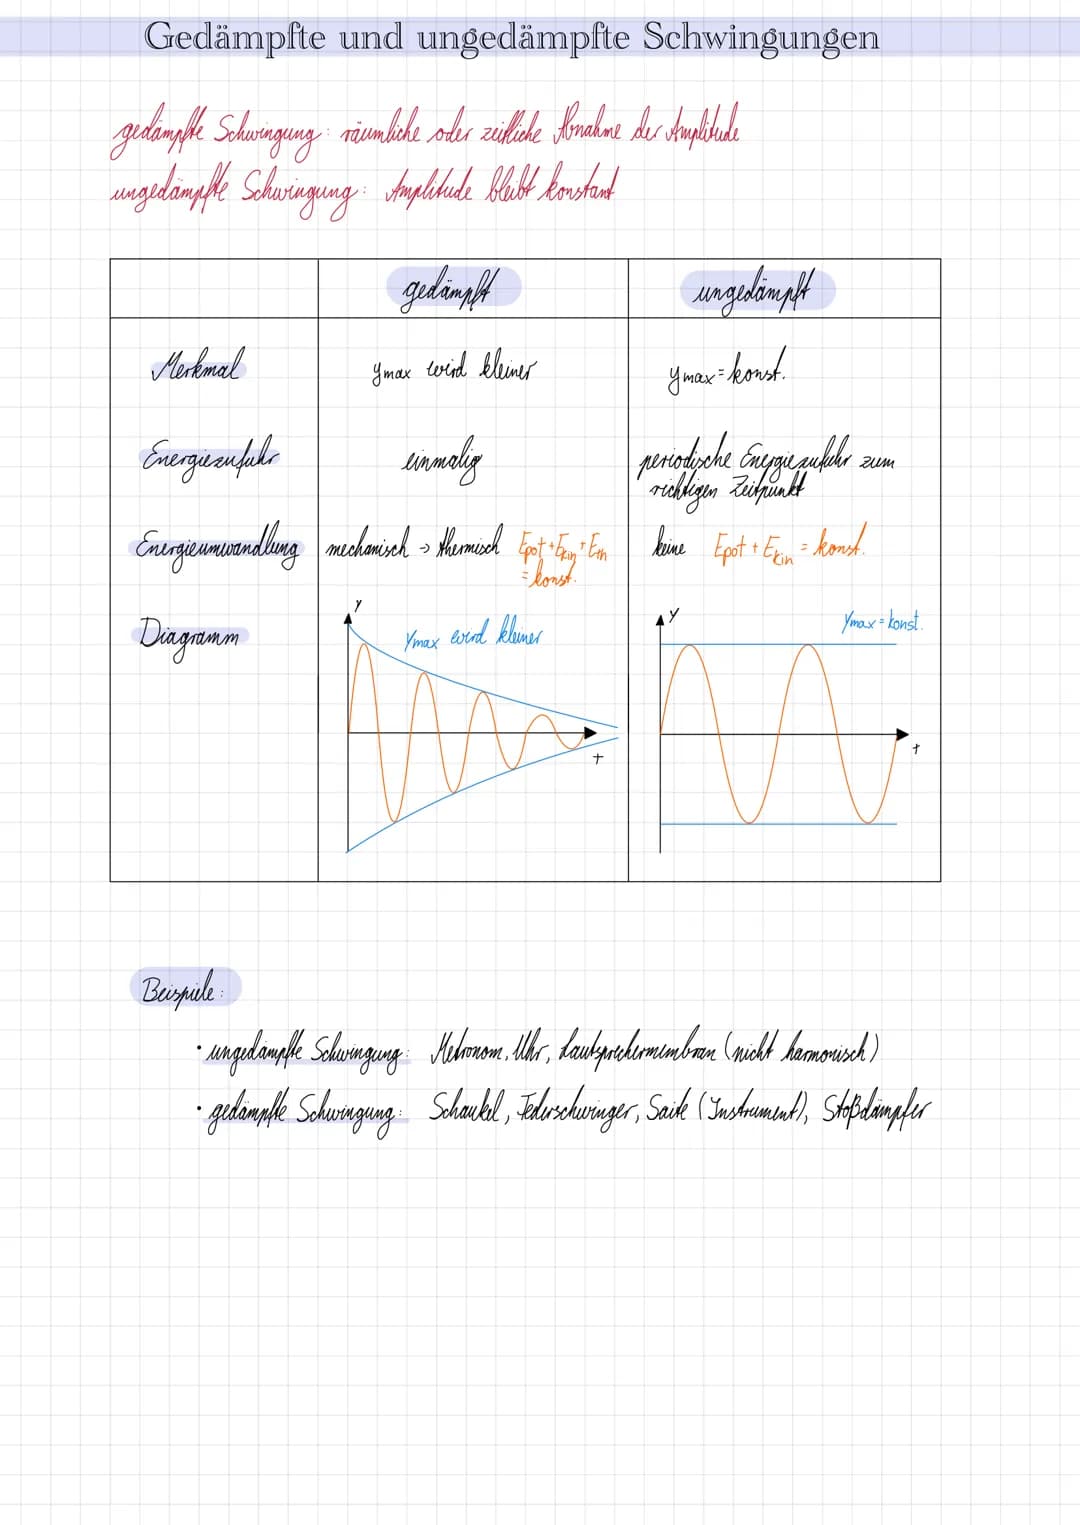 Gedämpfte und ungedämpfte Schwingungen
gedämpfte Schwingung: räumliche oder zeitliche Abnahme der Amplitude
ungedämpfte Schwingung: Amplitude bleibt konstant
gedämpft ungedämpft
Merkmal ymax wird kleiner ymax = konst.
Energiezufuhr einmalig periodische Energiezufuhr zum
richtigen Zeitpunkt
Energieumwandlung mechanisch → thermisch Epot + Ekin + Eth keine Epot + Ekin = konst.
= konst.
Diagramm y ymax wird kleiner y ymax = konst.
t t
Beispiele:
• ungedämpfte Schwingung: Metronom, Uhr, Lautsprechermembran (nicht harmonisch)
• gedämpfte Schwingung: Schaukel, Federschwinger, Saite (Instrument), Stoßdämpfer